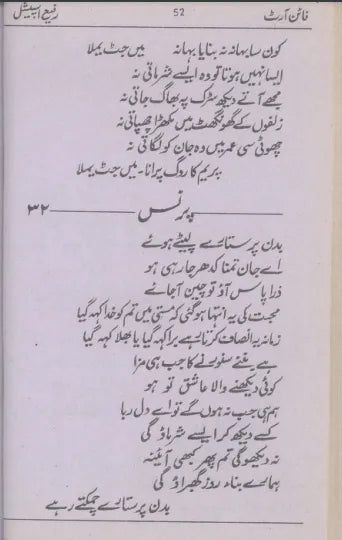 فائن آرٹ 52 رفیع اسپیشل
کون سا بہانہ نہ بنایا بہانہ میں جٹ یملا
ایسا نہیں ہوتا تو وہ ایسے شرماتی نہ
مجھے آتے دیکھ سڑک پہ بھاگ جاتی نہ
زلفوں کے گھونگھٹ میں مکھڑا چھپاتی نہ
چھوٹی سی عمر میں وہ جان کو لگاتی نہ
پریم کا روگ پرانا - میں جٹ یملا
پرنس ۳۲
بدن پر ستارے لپیٹے ہوئے
اے جان تمنا کدھر جا رہی ہو
ذرا پاس آؤ تو چین آ جائے
محبت کی یہ انتہا ہو گئی کہ مستی میں تم کو خدا کہہ گیا
زمانہ یہ انصاف کرتا رہے برا کہہ گیا یا بھلا کہہ گیا
ہے بننے سنورنے کا جب ہی مزا
کوئی دیکھنے والا عاشق تو ہو
ہم ہی جب نہ ہوں گے تو اے دل ربا
کسے دیکھ کر ایسے شرماؤ گی
نہ دیکھو گی تم پھر کبھی آئینہ
ہمارے بناء روز گھبراؤ گی
بدن پر ستارے چمکتے رہے